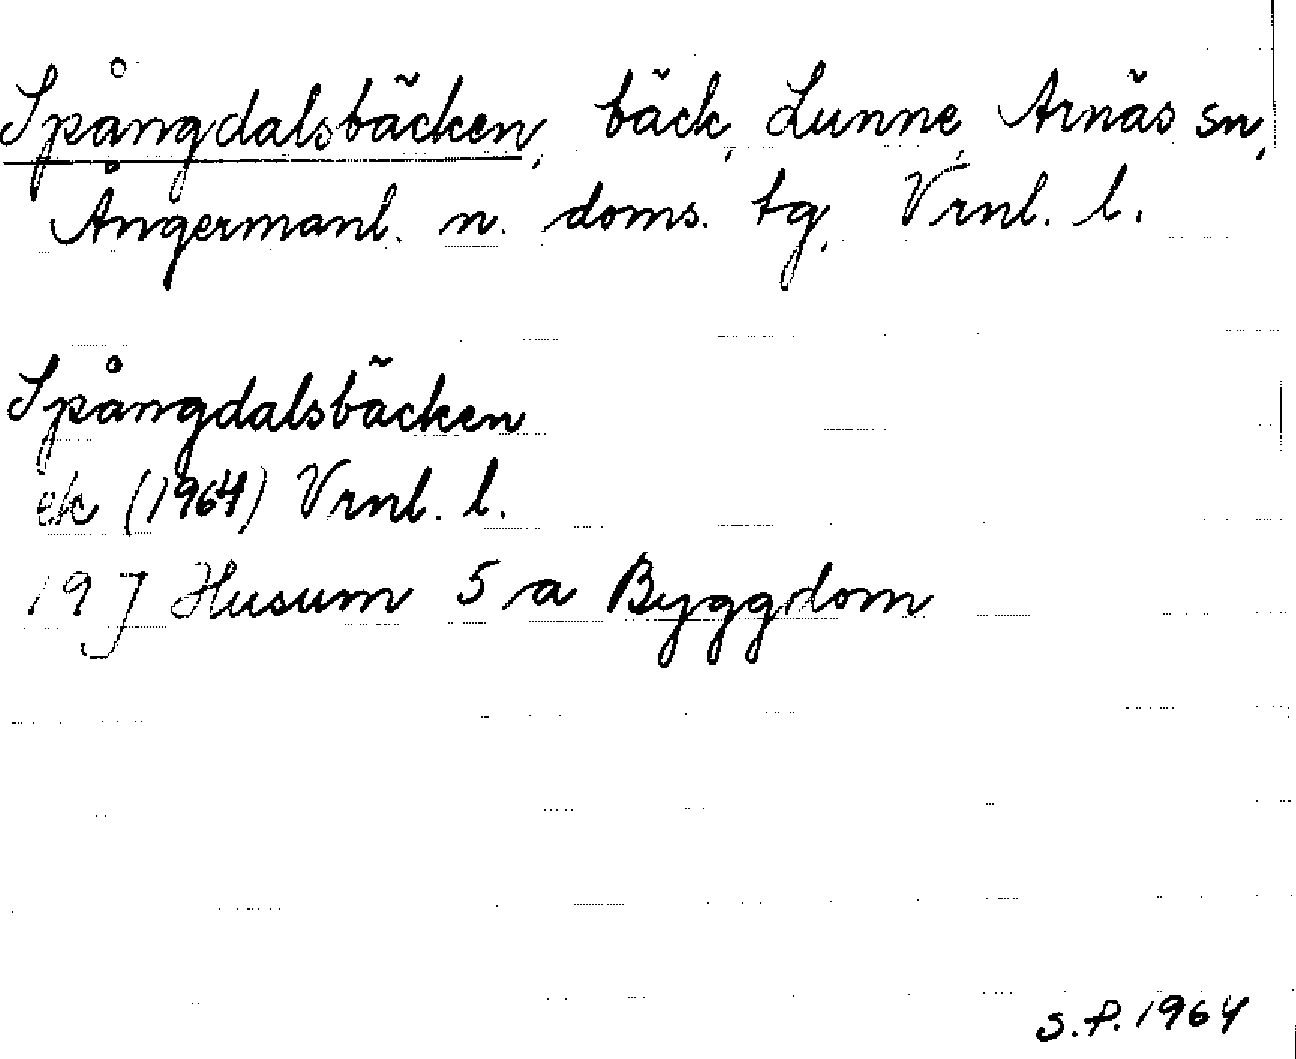 Spångdalsbäcken, bäck, Lunne, Arnäs sn,
Ångermanl. n. doms. tg, Vrnl. l.
Spångdalsbäcken
ek (1964) Vrnl. l.
19 J Husum 5 a Byggdom
S.P. 1964